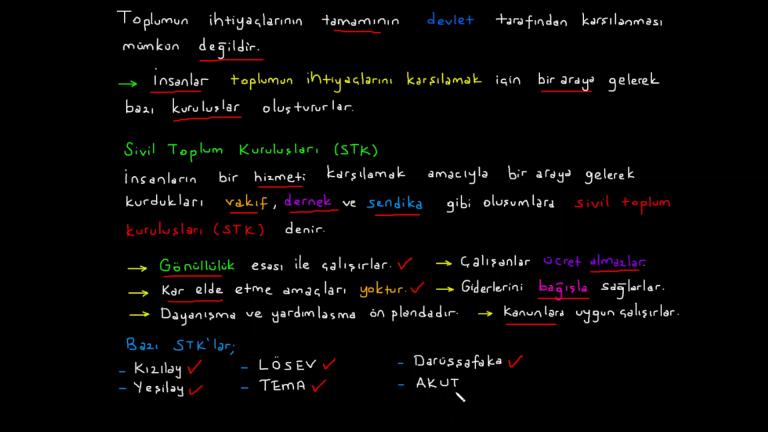 Toplumun ihtiyaçlarının tamamının devlet tarafından karşılanması
mümkün değildir.
→ İnsanlar toplumun ihtiyaçlarını karşılamak için bir araya gelerek
bazı kuruluşlar oluştururlar.
Sivil Toplum Kuruluşları (STK)
İnsanların bir hizmeti karşılamak amacıyla bir araya gelerek
kurdukları vakıf, dernek ve sendika gibi oluşumlara sivil toplum
kuruluşları (STK) denir.
→ Gönüllülük esası ile çalışırlar. ✓ → Çalışanlar ücret almazlar.
→ Kar elde etme amaçları yoktur. ✓ → Giderlerini bağışla sağlarlar.
→ Dayanışma ve yardımlaşma ön plandadır. → Kanunlara uygun çalışırlar.
Bazı STK'lar;
- Kızılay ✓ - LÖSEV ✓ - Darüşşafaka ✓
- Yeşilay ✓ - TEMA ✓ - AKUT